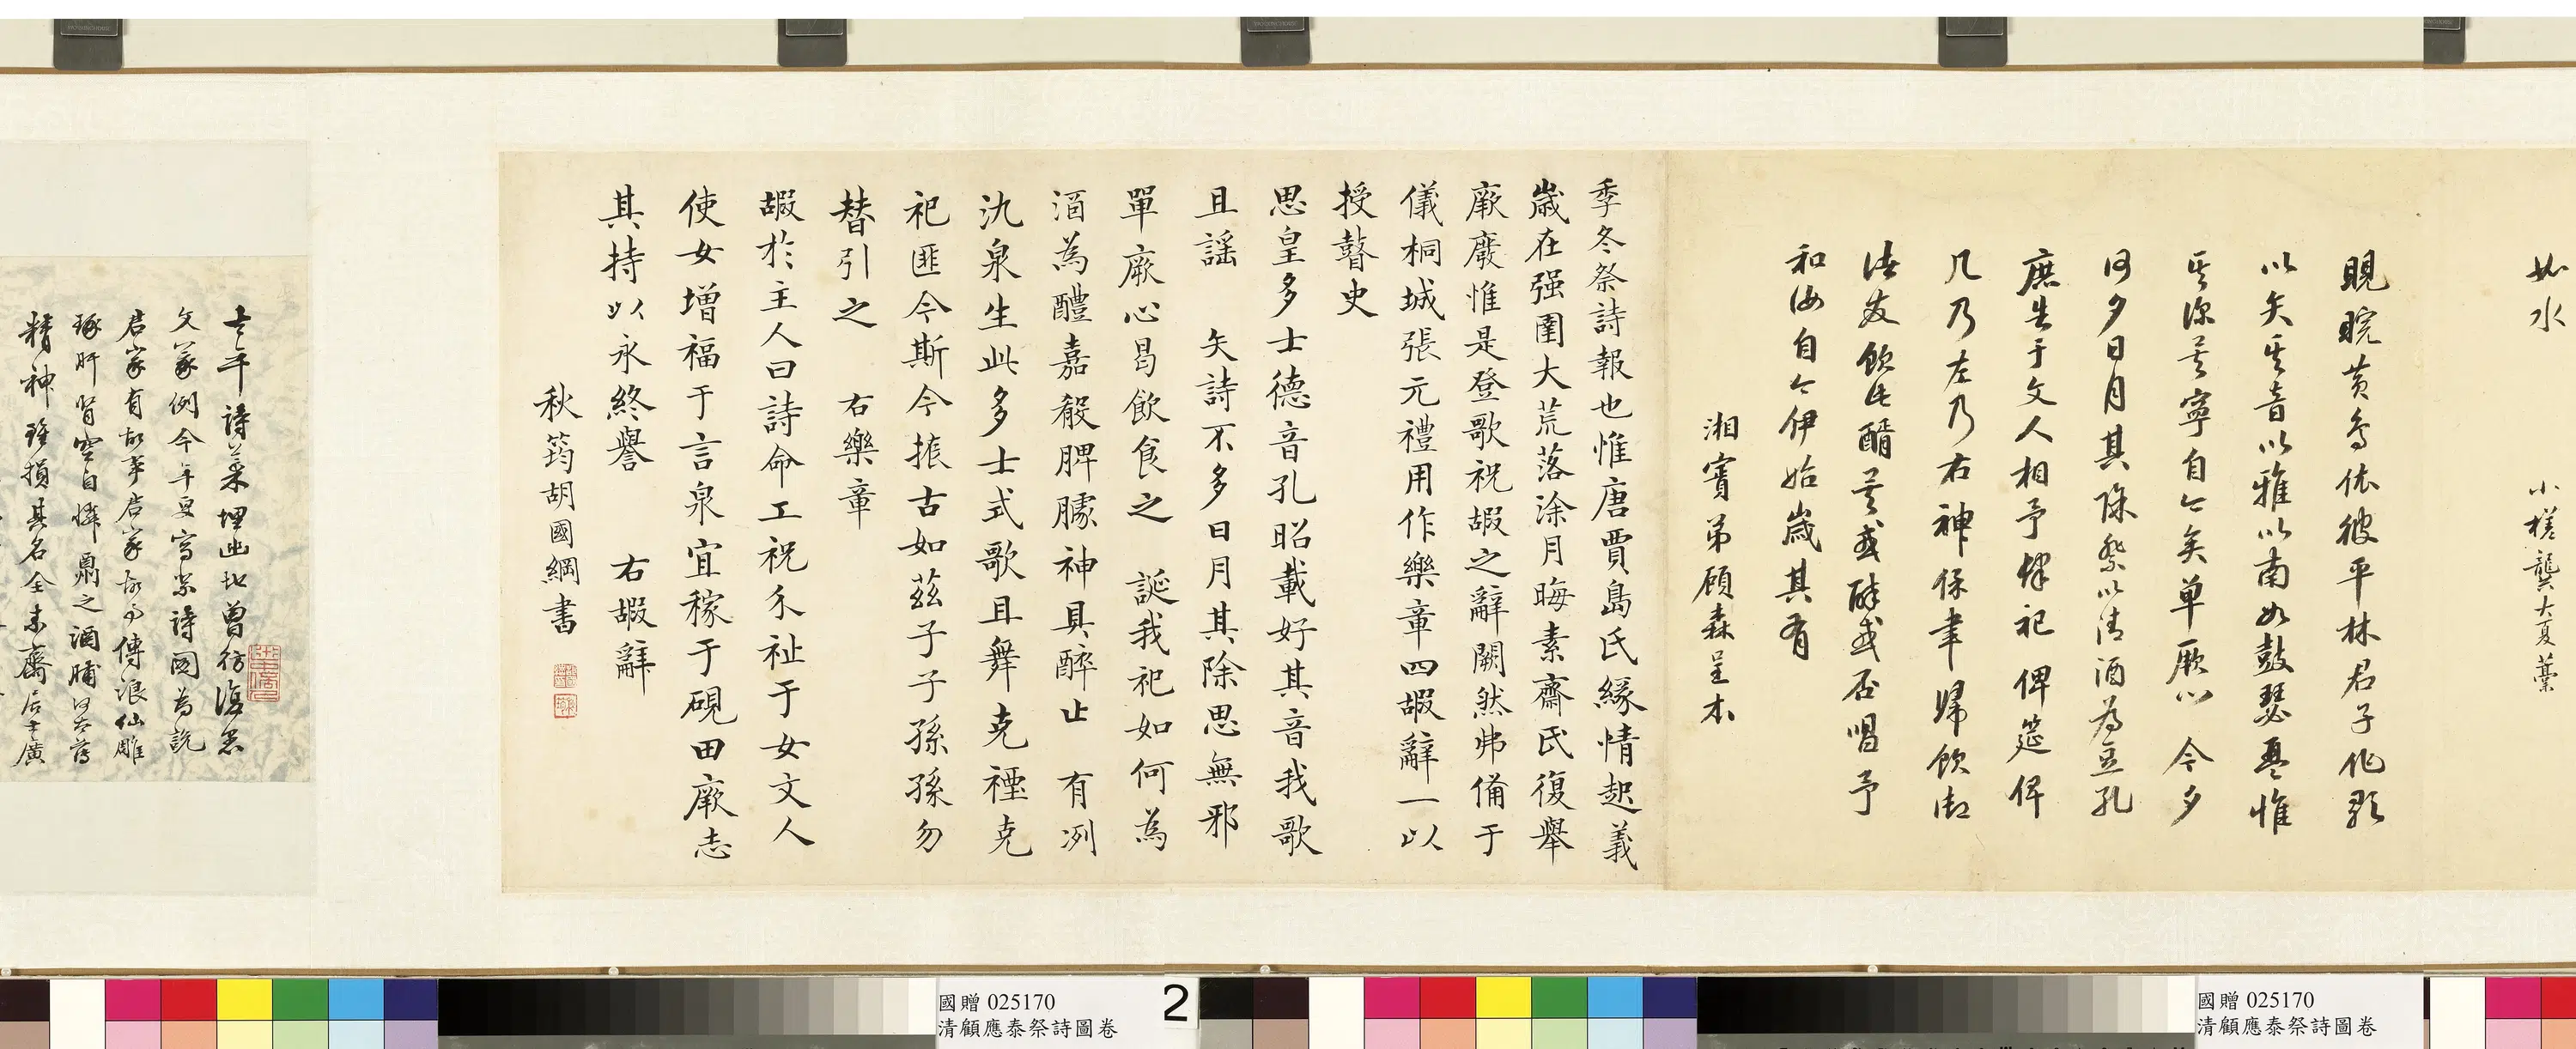 如水
小槎龔大夏藁
睍睆黃鳥依彼平林君子作歌
以矢其音以雅以南如鼓瑟琴惟
其深矣寧自今矣單厥心今夕
何夕日月其除祭以清酒為豆孔
庶告于文人相予肆祀俾筵俾
几乃左乃右神保聿歸飲御
諸友飲此醑矣或醉或否唱予
和汝自今伊始歲其有
湘賓弟顧森呈本
季冬祭詩報也惟唐賈島氏緣情起義
歲在强圉大荒落涂月晦素齋氏復舉
厥廢惟是登歌祝嘏之辭闕然弗備于
儀桐城張元禮用作樂章四嘏辭一以
授瞽史
思皇多士德音孔昭載好其音我歌
且謠 矢詩不多日月其除思無邪
單厥心曷飲食之 誕我祀如何為
酒為醴嘉殽脾臄神具醉止 有冽
氿泉生此多士式歌且舞克禋克
祀匪今斯今振古如茲子子孫孫勿
替引之 右樂章
嘏於主人曰詩命工祝介祉于女文人
使女增福于言泉宜稼于硯田厥志
其持以永終譽 右嘏辭
秋筠胡國綱書
去年詩藁埋幽地曾仿浪
文冢例今年更寫祭詩圖為說
君家有故事君家故事傳浪仙雕
琢肝腎空自憐勗之酒脯
精神雖損其名全素齋居士廣
國贈 025170
清顧應泰祭詩圖卷
2
國贈 025170
清顧應泰祭詩圖卷